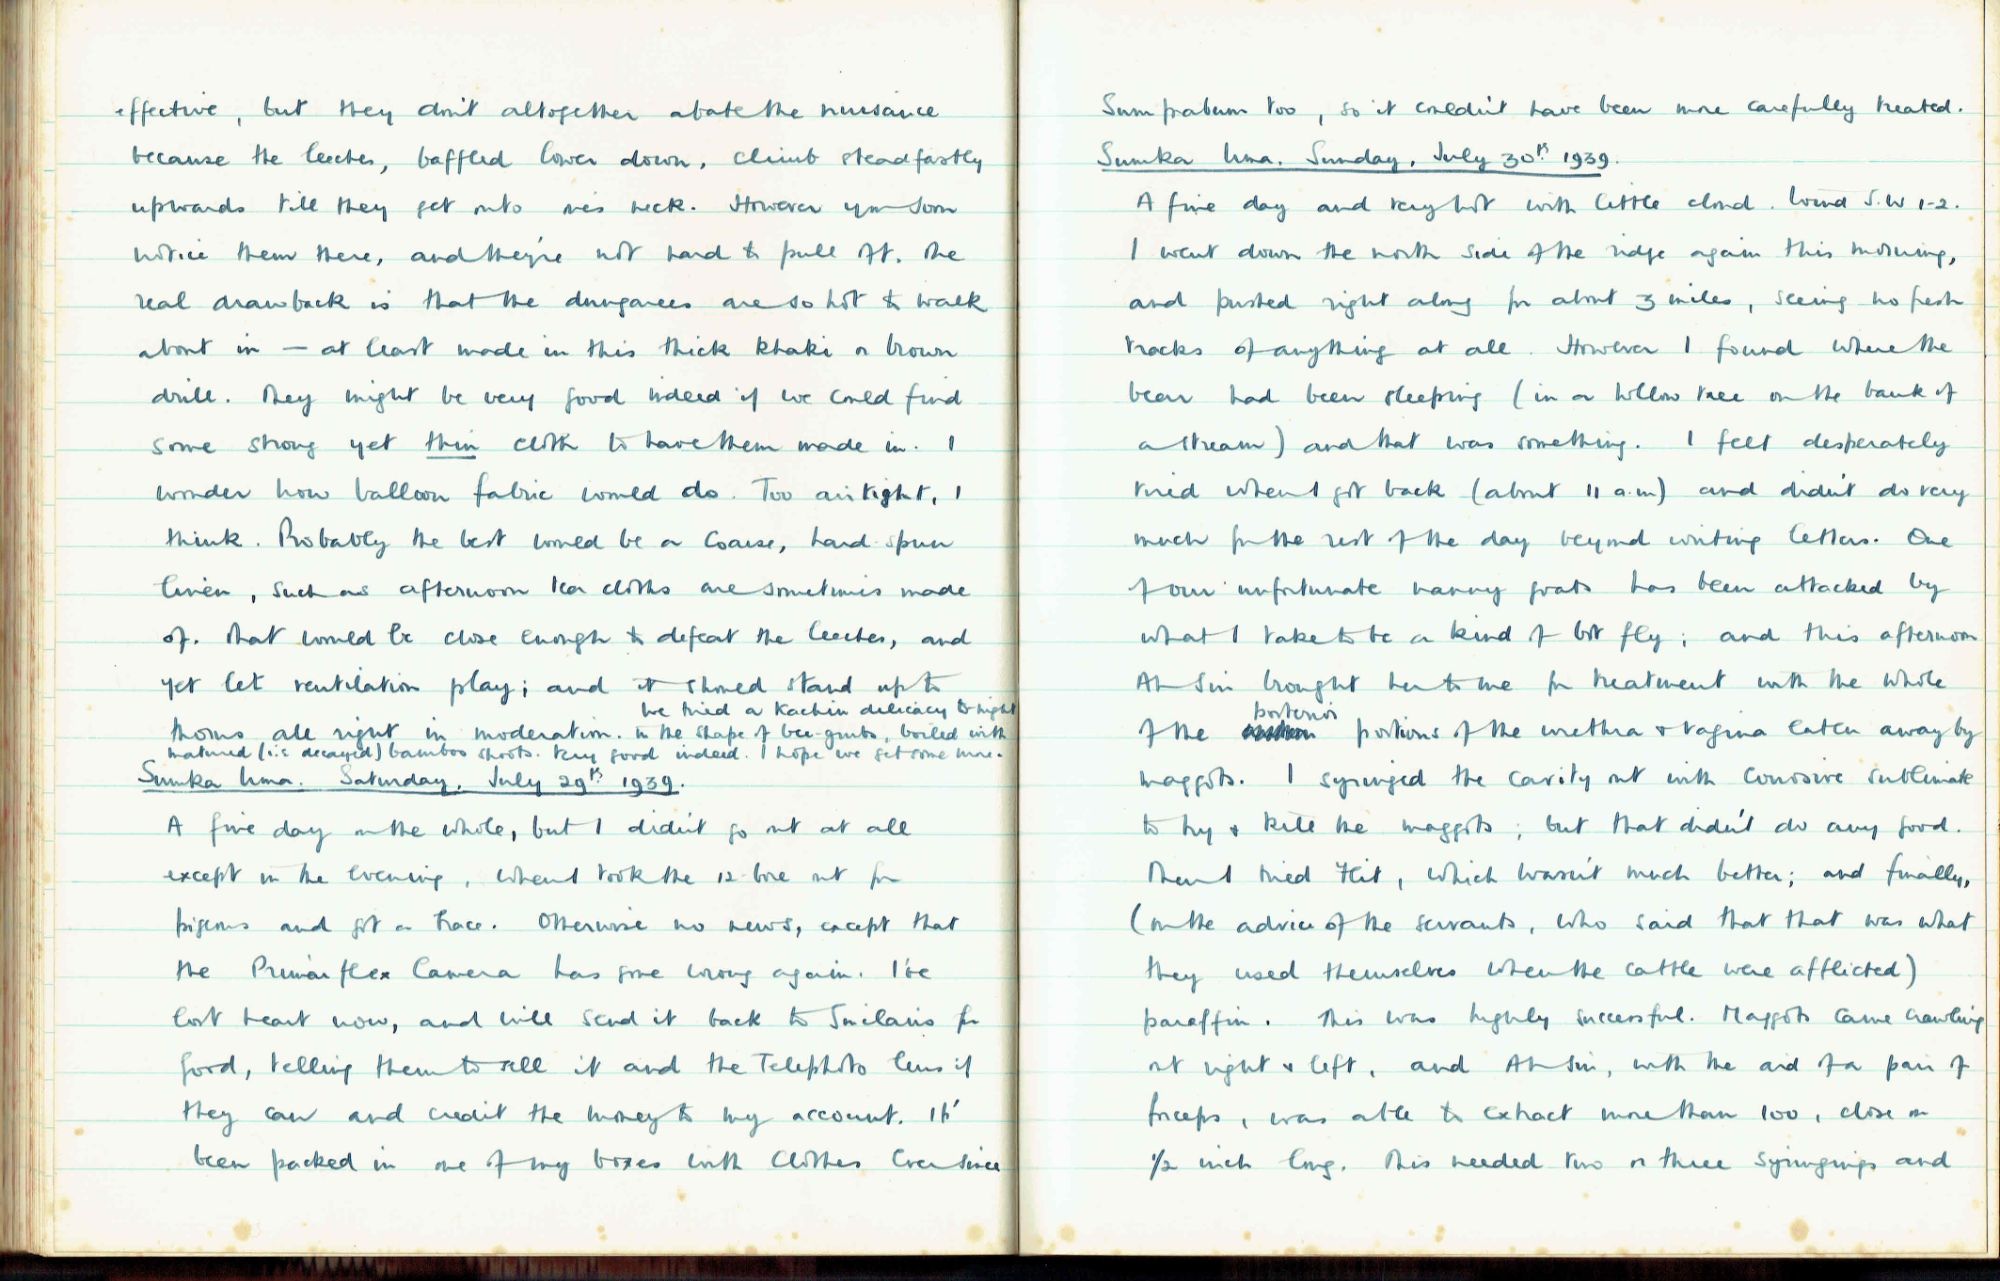 effective, but they don't altogether abate the nuisance
because the leeches, baffled lower down, climb steadfastly
upwards till they get onto one's neck. However you soon
notice them there, and they're not hard to pull off. The
real drawback is that the dungarees are so hot to walk
about in — at least made in this thick khaki or brown
drill. They might be very good indeed if we could find
some strong yet thin cloth to have them made in. I
wonder how balloon fabric would do. Too airtight, I
think. Probably the best would be a coarse, hard-spun
linen, such as afternoon tea cloths are sometimes made
of. That would be close enough to defeat the leeches, and
yet let ventilation play; and it should stand up to
thorns all right in moderation. We tried a Kachin delicacy to-night
in the shape of bee-grubs, boiled with
matured (i.e. decayed) bamboo shoots. Very good indeed. I hope we get some more.
Sumka Uma. Saturday, July 29th 1939.
A fine day on the whole, but I didn't go out at all
except in the evening, when I took the 12-bore out for
pigeons and got a brace. Otherwise no news, except that
the Primarflex Camera has gone wrong again. I've
lost heart now, and will send it back to for
good, telling them to sell it and the Telephoto lens if
they can and credit the money to my account. It's
been packed in one of my boxes with clothes ever since
Sumprabum too, so it couldn't have been more carefully treated.
Sumka Uma. Sunday, July 30th 1939.
A fine day and very hot with little cloud. Wind S.W 1-2.
I went down the north side of the ridge again this morning,
and pushed right along for about 3 miles, seeing no fresh
tracks of anything at all. However I found where the
bear had been sleeping (in a hollow tree on the bank of
a stream) and that was something. I felt desperately
tired when I got back (about 11 a.m) and didn't do very
much for the rest of the day beyond writing letters. One
of our unfortunate nanny goats has been attacked by
what I take to be a kind of bot fly; and this afternoon
Ah Sin brought her to me for treatment with the whole
of the posterior portions of the urethra & vagina eaten away by
maggots. I syringed the cavity out with corrosive sublimate
to try & kill the maggots; but that didn't do any good.
Then I tried Flit, which wasn't much better; and finally,
(on the advice of the servants, who said that that was what
they used themselves when the cattle were afflicted)
paraffin. This was highly successful. Maggots came crawling
out right & left, and Ah Sin, with the aid of a pair of
forceps, was able to extract more than 100, close on
1/2 inch long. This needed two or three syringings and